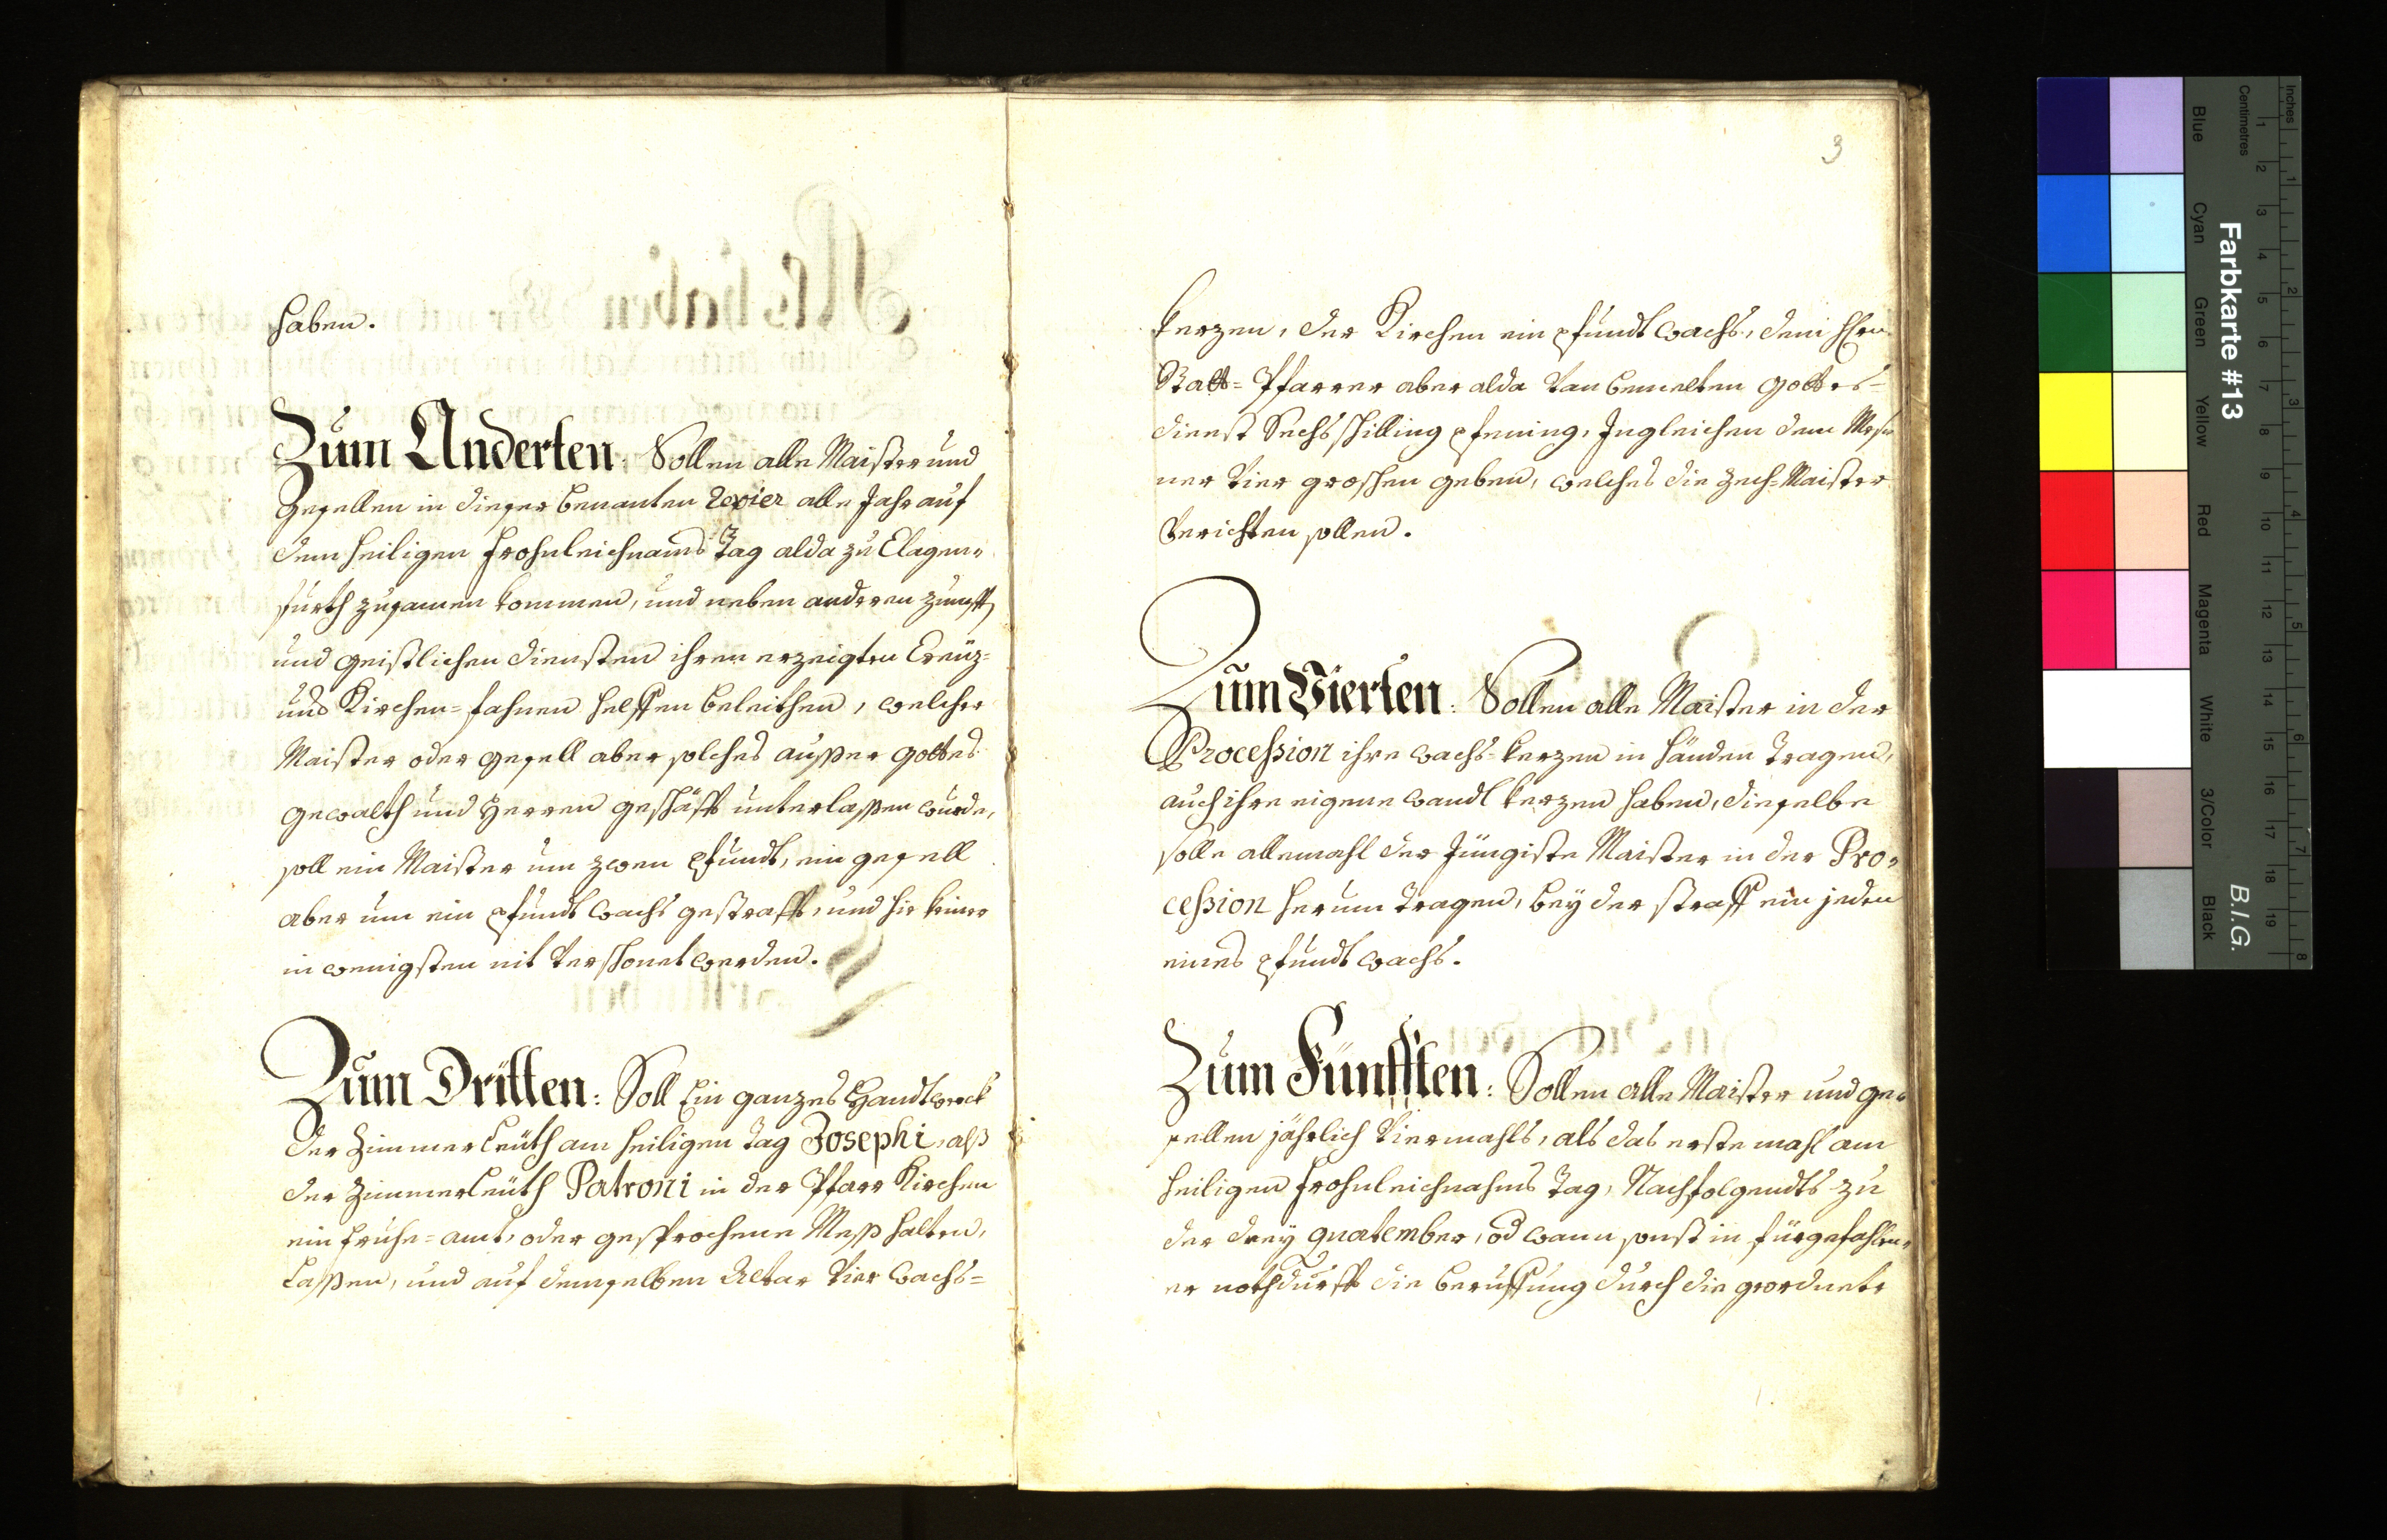 haben.
Zum Anderten: Sollen alle Maister und
Gesellen in dieser benanten Revier alle Jahr auf
dem heiligen Frohnleichnams Tag alda zu Clagen-
furth zusamen kommen, und neben anderen zunfft
und geistlichen diensten ihren erzeigten Creüz-
und Kirchen-fahnen helffen beleithen, welcher
Maister oder gesell aber solches ausser gottes
gewalth und Herren geschäfft unterlassen wurde,
soll ein Maister um zwen pfundt, ein gesell
aber um ein pfundt wachs gestrafft, und hie keiner
in wenigsten nit verschonet werden.
Zum Dritten: Soll Ein ganzes Handtwerck
der Zimmerleüth am heiligen Tag Josephi, alß
der Zimmerleüth Patroni in der Pfarr Kirchen
ein fruhe-amt, oder gesprochene Meß halten,
lassen, und auf demselben Altar vier wachs-
3
kerzen, der Kirchen ein pfundt wachs, dem Hhrn
Statt-Pfarrer aber alda von bemelten gottes-
dienst Sechs schilling pfening, Ingleichen dem Mess-
ner vier groschen geben, welches die Zech-Maister
verichten sollen.
Zum Vierten: Sollen alle Maister in der
Procession ihre wachs-kerzen in händen tragen,
auch ihre eigene wandl kerzen haben, dieselbe
solle allemahl der Jüngiste Maister in der Pro-
cession herum tragen, bey der straff ein jeden
eines pfundt wachs.
Zum Fünfften: Sollen alle Maister und ge-
sellen jährlich viermahls, als das erste mahl am
heiligen Frohnleichnahms Tag, Nachfolgendts zu
der drey quatember, od wann sonst in fürgefahlen-
er nothdurfft die beruffung durch die geordnete
Farbkarte #13
B.I.G.
Inches
Centimetres
1 2 3 4 5 6 7 8 9 10 11 12 13 14 15 16 17 18 19
1 2 3 4 5 6 7 8
Blue
Cyan
Green
Yellow
Red
Magenta
White
3/Color
Black